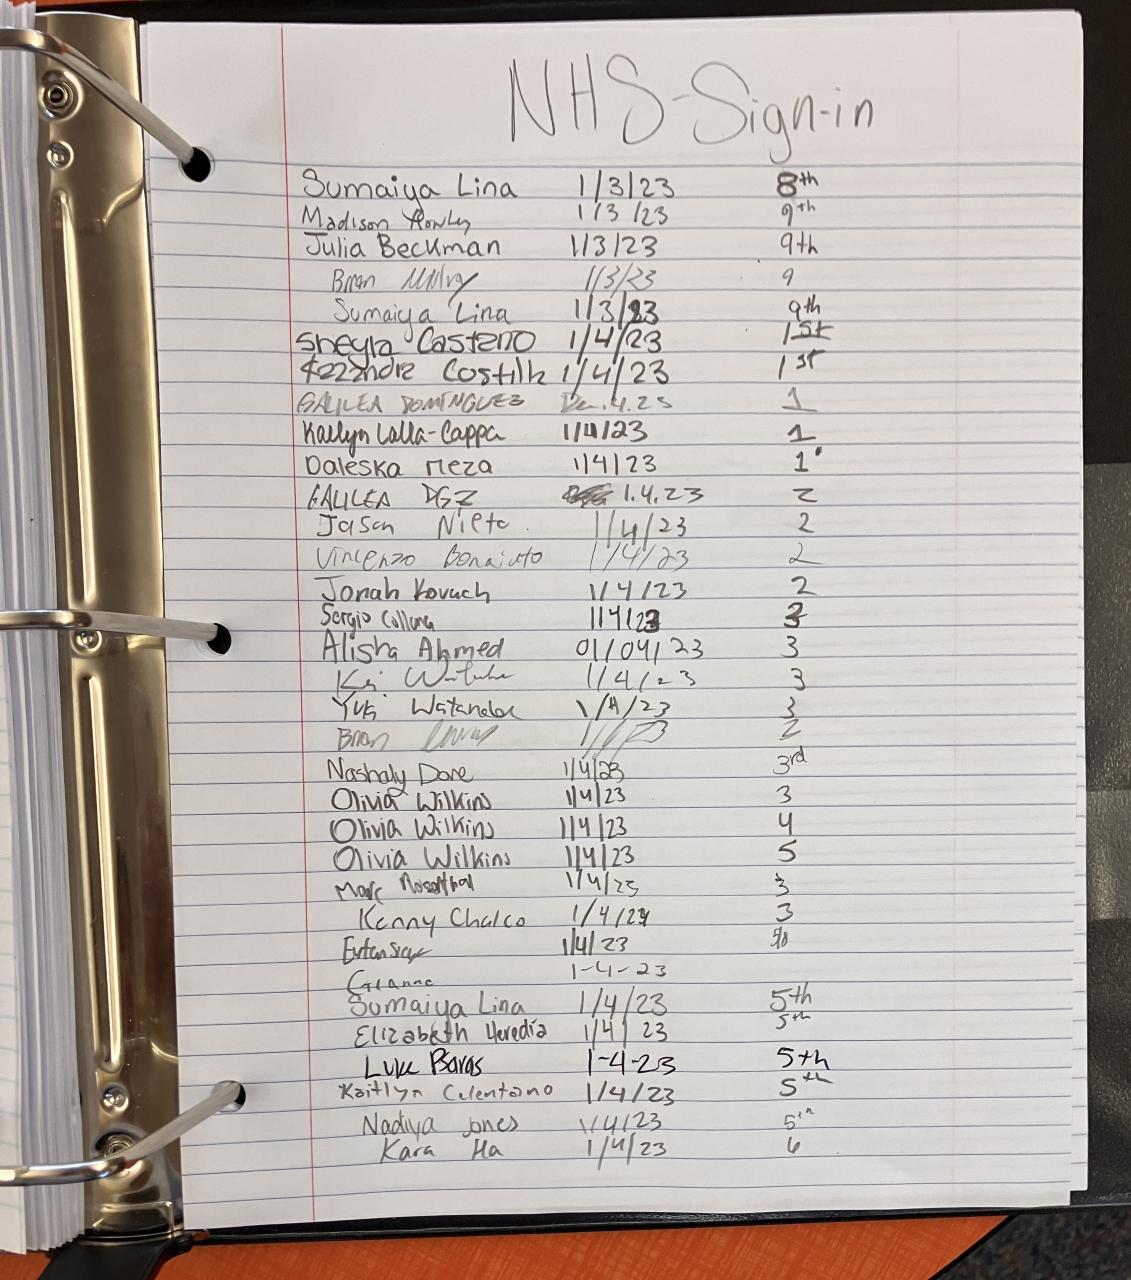 NHS-Sign-in
Sumaiya Lina 1/3/23 8th
Madison 1/3/23 9th
Julia Beckman 1/3/23 9th
Brian 1/3/23 9
Sumaiya Lina 1/3/23 9th
Sheyla Casteno 1/4/23 1st
Costilla 1/4/23 1st
GALILEA DOMINGUEZ 1
Kaelyn Lalla-Cappa 1/4/23 1
Daleska Meza 1/4/23 1
GALILEA DGZ 1.4.23 2
Jason Nieto 1/4/23 2
Vincenzo Bonaiuto 1/4/23 2
Jonah Kovach 1/4/23 2
Sergio 1/4/23 3
Alisha Ahmed 01/04/23 3
Kei 1/4/23 3
Yuki Watanabe 1/4/23 3
Brian 2
Nashaly Dore 1/4/23 3rd
Olivia Wilkins 1/4/23 3
Olivia Wilkins 1/4/23 4
Olivia Wilkins 1/4/23 5
Marc Rosenthal 1/4/23 3
Kenny Chalco 1/4/23 3
1/4/23
1-4-23
Sumaiya Lina 1/4/23 5th
Elizabeth Heredia 1/4/23 5th
Luke Baras 1-4-23 5th
Kaitlyn Celentano 1/4/23 5th
Nadiya Jones 1/4/23 5th
Kara Ha 1/4/23 6